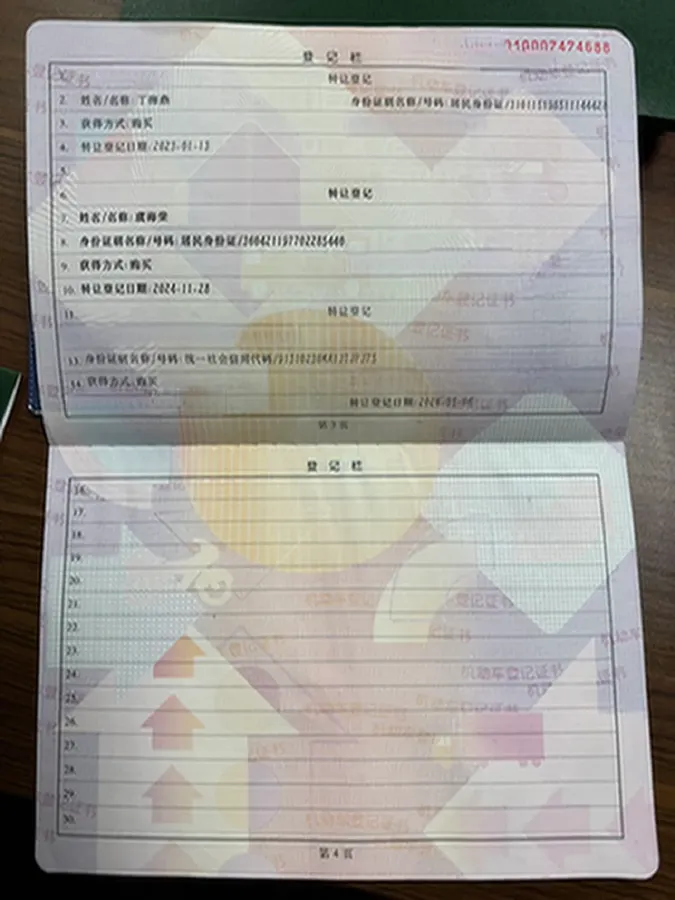 登记栏
转让登记
2. 姓名/名称:丁海燕
身份证明名称/号码:居民身份证/
3. 获得方式:购买
4. 转让登记日期:2023-01-13
5.
6. 转让登记
7. 姓名/名称:虞海荣
8. 身份证明名称/号码:居民身份证/360421197702285440
9. 获得方式:购买
10. 转让登记日期:2024-11-28
11. 转让登记
13. 身份证明名称/号码:统一社会信用代码/
14. 获得方式:购买
转让登记日期:
第3页
登记栏
16.
17.
18.
19.
20.
21.
22.
23.
24.
25.
26.
27.
28.
29.
30.
第4页
机动车登记证书